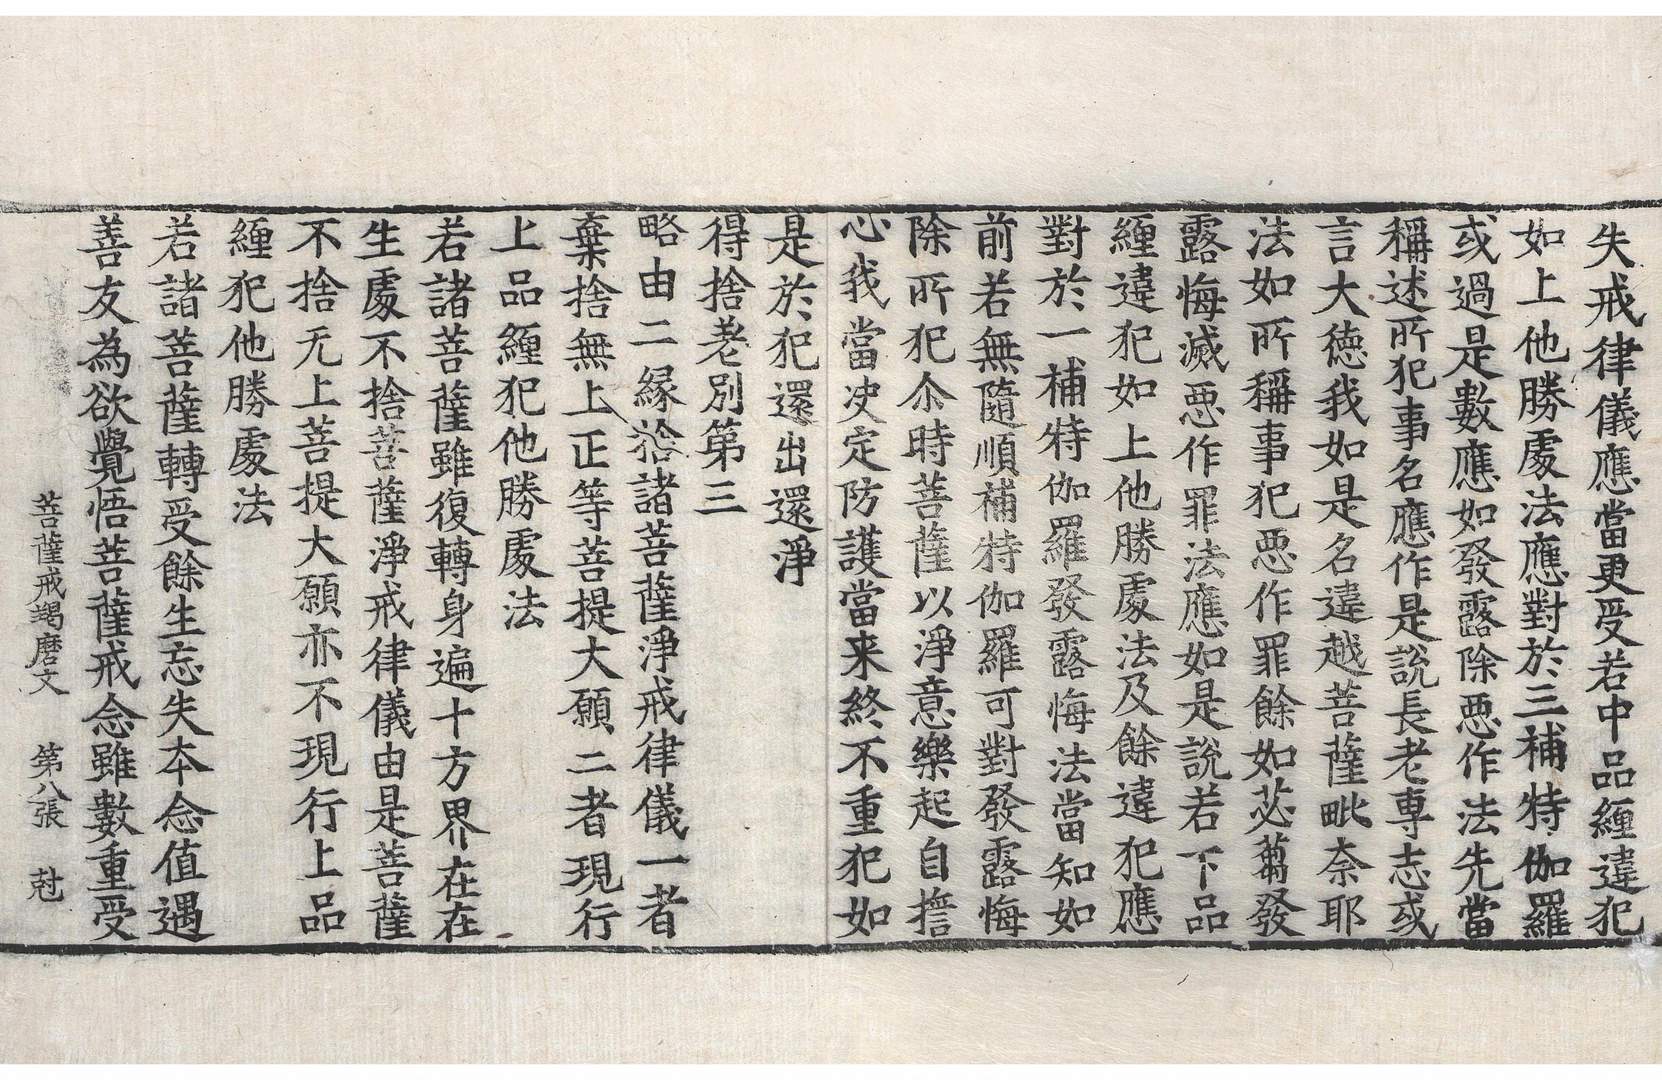 失戒律儀應當更受若中品纏違犯
如上他勝處法應對於三補特伽羅
或過是數應如發露除惡作法先當
稱述所犯事名應作是說長老專志或
言大德我如是名違越菩薩毗奈耶
法如所稱事犯惡作罪餘如苾蒭發
露悔滅惡作罪法應如是說若下品
纏違犯如上他勝處法及餘違犯應
對於一補特伽羅發露悔法當知如
前若無隨順補特伽羅可對發露悔
除所犯尒時菩薩以淨意樂起自擔
心我當决定防護當来終不重犯如
是於犯還出還淨
得捨差別第三
略由二緣捨諸菩薩淨戒律儀一者
棄捨無上正等菩提大願二者現行
上品纏犯他勝處法
若諸菩薩雖復轉身遍十方界在在
生處不捨菩薩淨戒律儀由是菩薩
不捨无上菩提大願亦不現行上品
纏犯他勝處法
若諸菩薩轉受餘生忘失本念值遇
善友為欲覺悟菩薩戒念雖數重受
菩薩戒羯磨文 第八張 尅